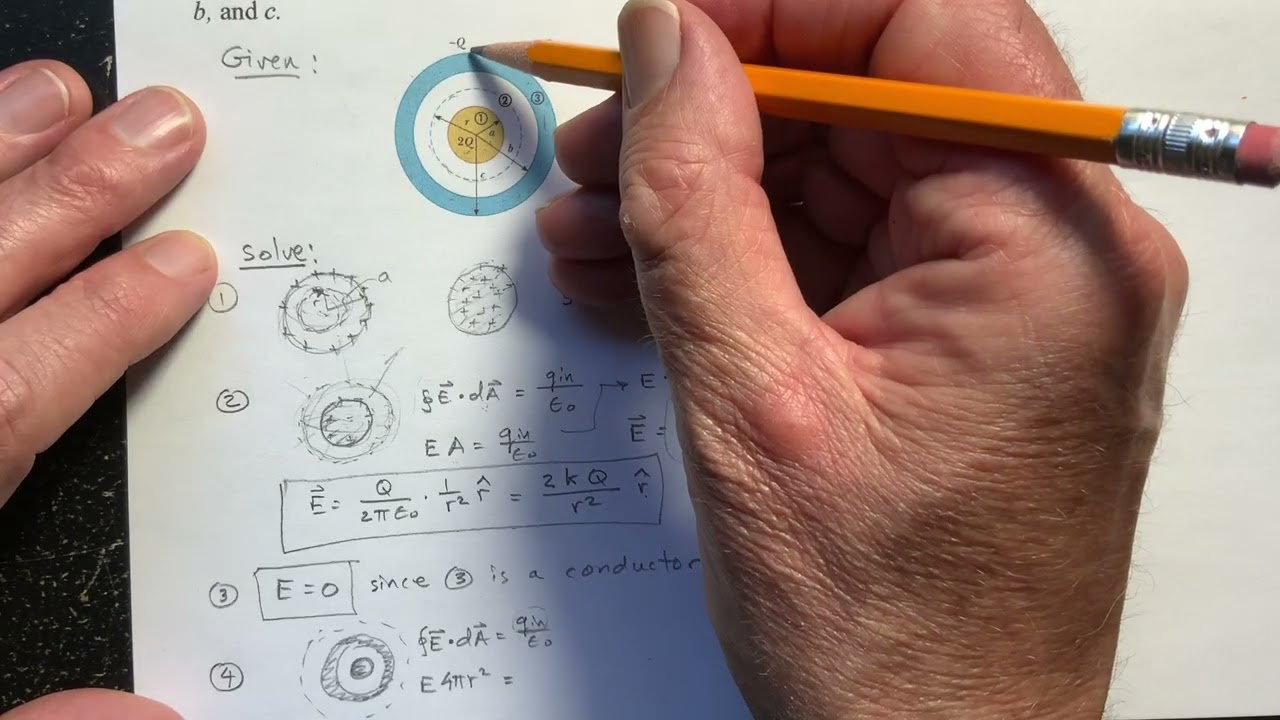 b, and c.
Given:
-Q
② ③
r ①
a
2Q
b
c
solve:
① a
② ∮E⃗·dA⃗ = qin/ε₀ → E
E A = qin/ε₀ E⃗ =
E⃗ = Q/2πε₀ · 1/r² r̂ = 2kQ/r² r̂
③ E = 0 since ③ is a conductor
④ ∮E⃗·dA⃗ = qin/ε₀
E 4πr² =